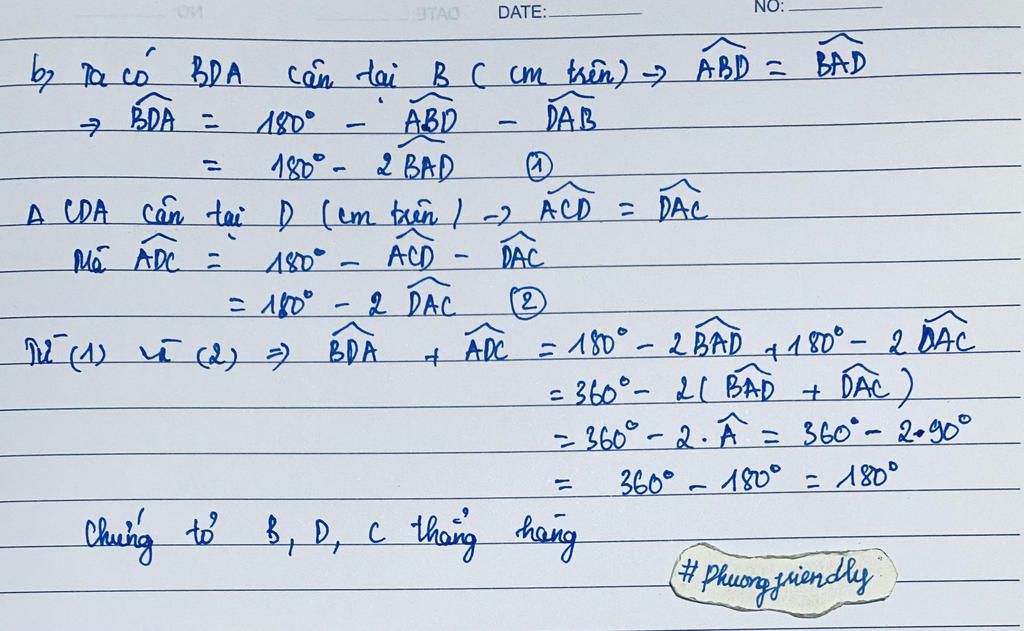 DATE: NO:
b, Ta có BDA cân tại B ( cm trên) → \widehat{ABD} = \widehat{BAD}
→ \widehat{BDA} = 180° - \widehat{ABD} - \widehat{DAB}
= 180° - 2 \widehat{BAD} ①
Δ CDA cân tại D (cm trên) → \widehat{ACD} = \widehat{DAC}
Mà \widehat{ADC} = 180° - \widehat{ACD} - \widehat{DAC}
= 180° - 2 \widehat{DAC} ②
Từ (1) và (2) ⇒ \widehat{BDA} + \widehat{ADC} = 180° - 2 \widehat{BAD} + 180° - 2 \widehat{DAC}
= 360° - 2( \widehat{BAD} + \widehat{DAC} )
= 360° - 2. \widehat{A} = 360° - 2.90°
= 360° - 180° = 180°
Chứng tỏ B, D, C thẳng hàng
#phuongfriendly